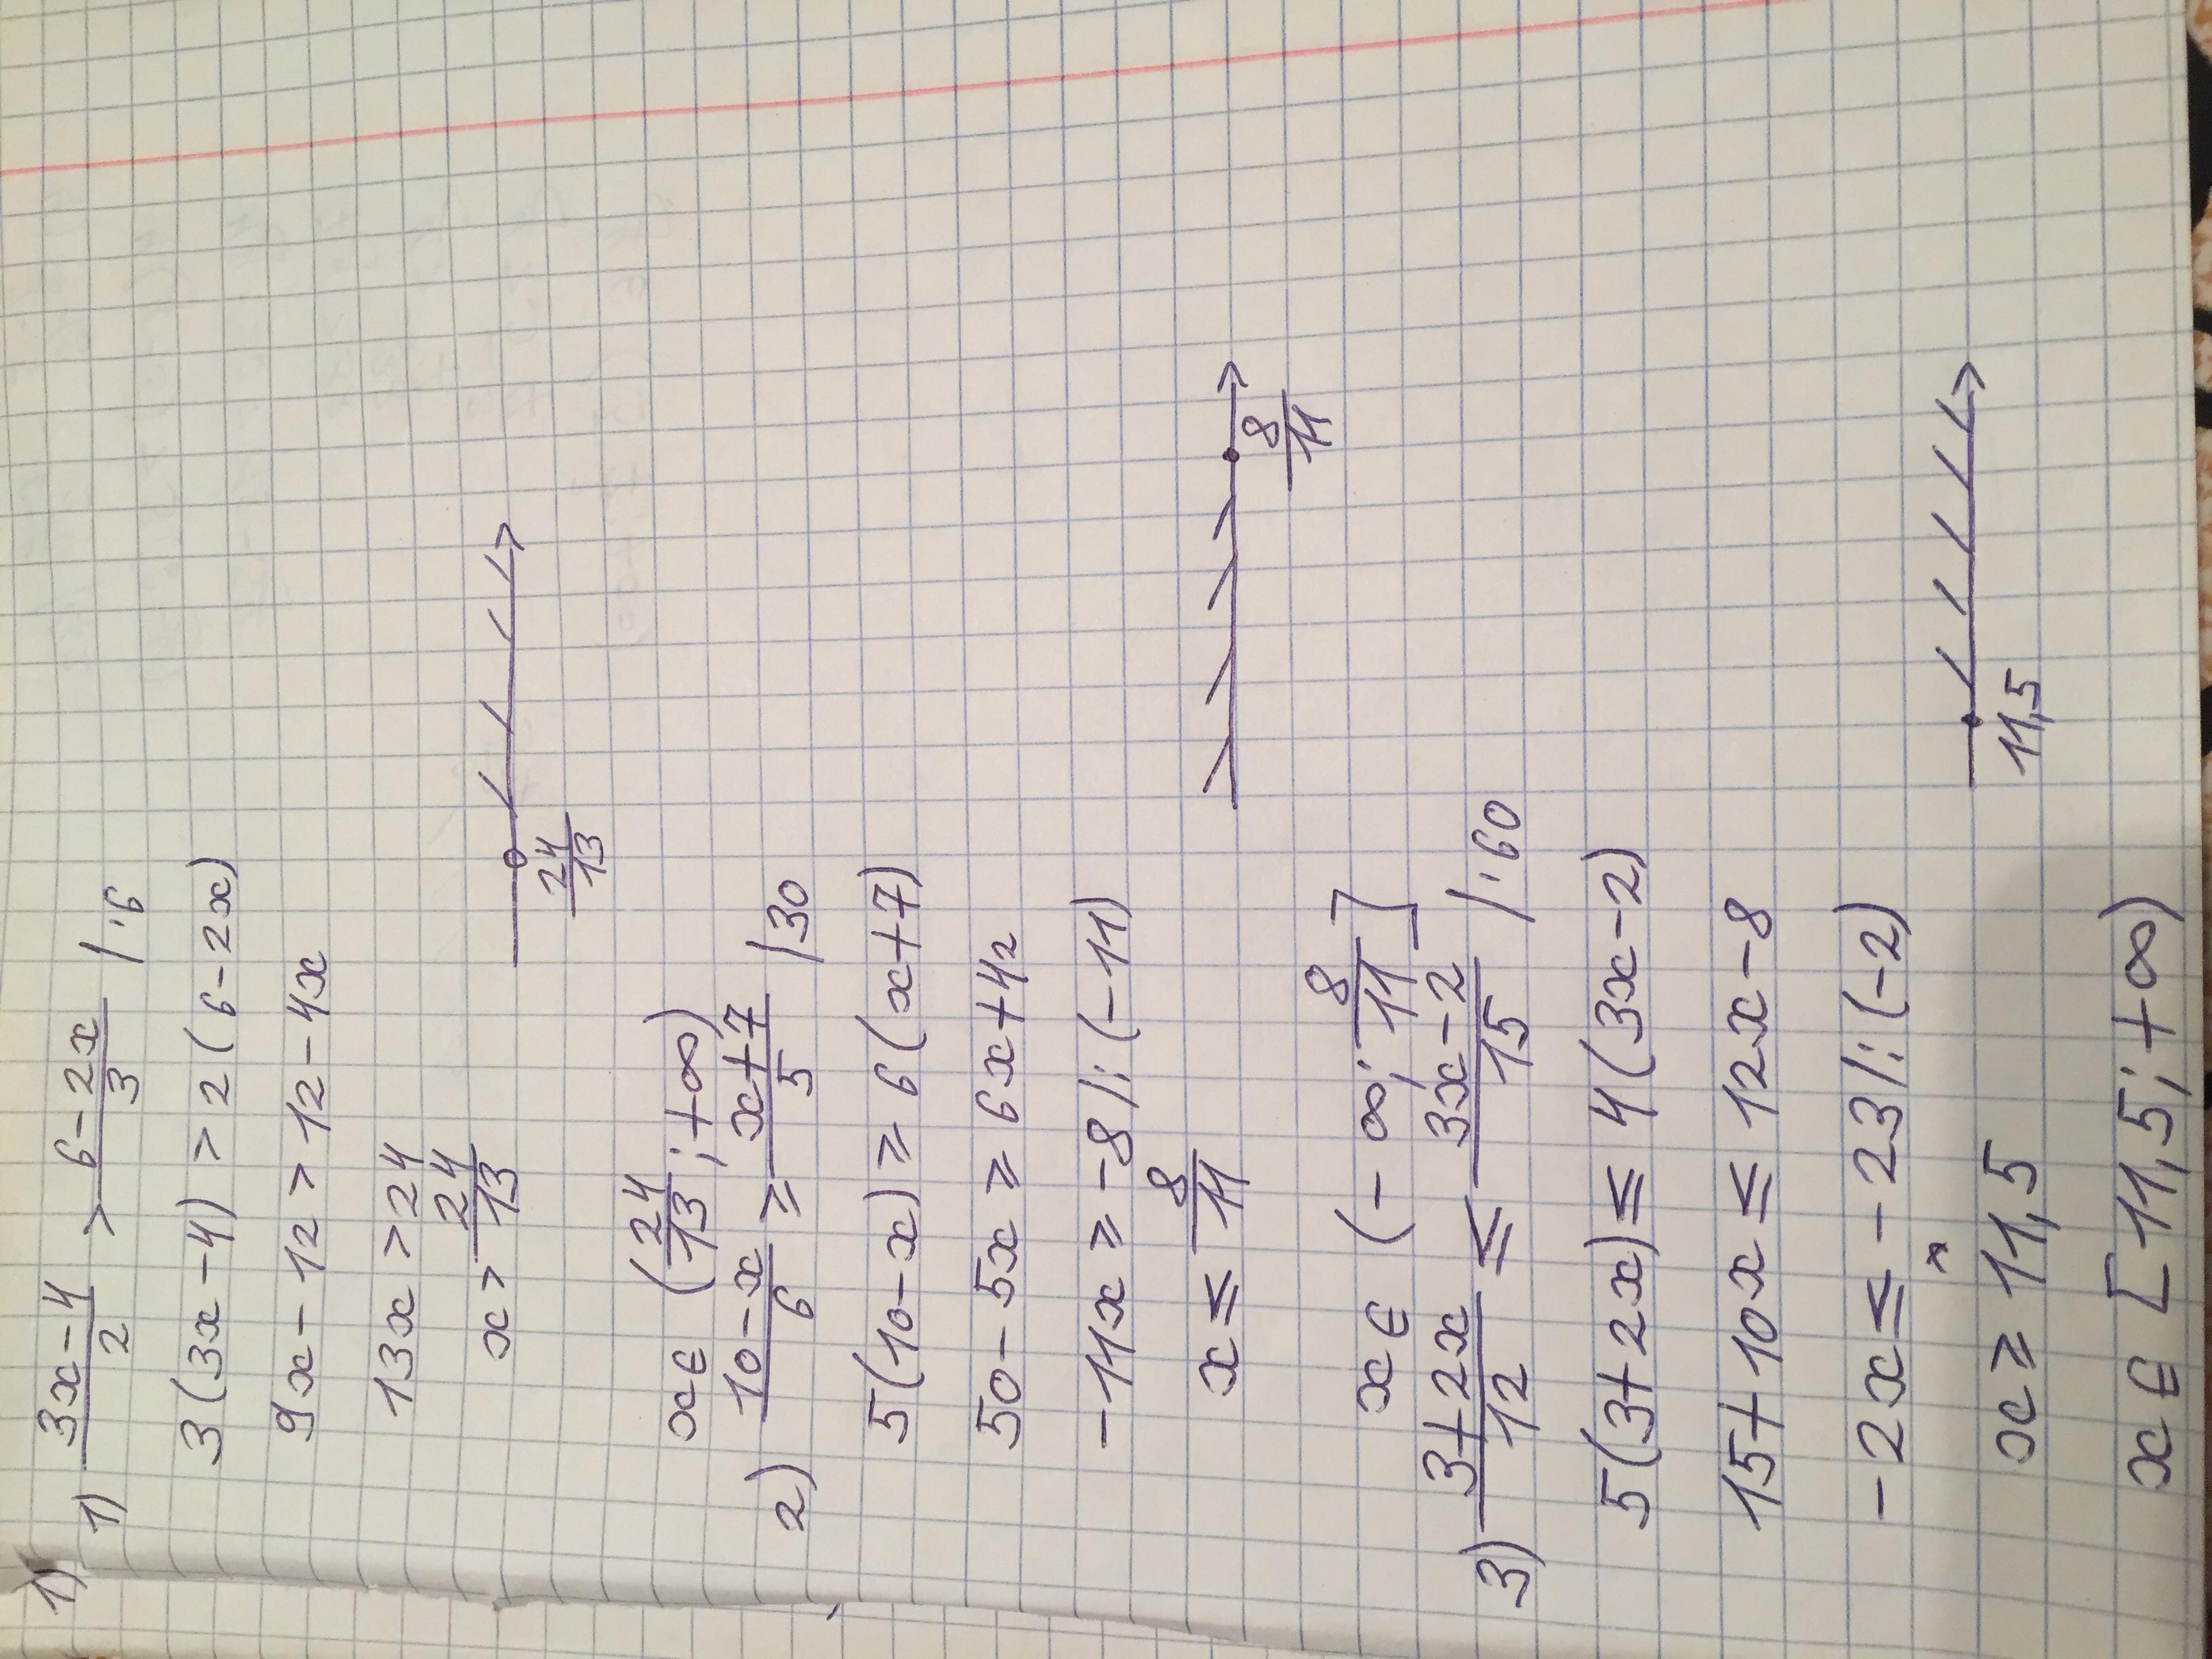 1)
1) \frac{3x-4}{2} > \frac{6-2x}{3} /·6
3(3x-4) > 2(6-2x)
9x-12 > 12-4x
13x > 24
x > \frac{24}{13}
\frac{24}{13}
x ∈ (\frac{24}{13}; +∞)
2) \frac{10-x}{6} ⩾ \frac{x+7}{5} /30
5(10-x) ⩾ 6(x+7)
50-5x ⩾ 6x+42
-11x ⩾ -8 /:(-11)
x ≤ \frac{8}{11}
\frac{8}{11}
x ∈ (-∞; \frac{8}{11}]
3) \frac{3+2x}{12} ≤ \frac{3x-2}{15} /·60
5(3+2x) ≤ 4(3x-2)
15+10x ≤ 12x-8
-2x ≤ -23 /:(-2)
x ⩾ 11,5
11,5
x ∈ [11,5; +∞)